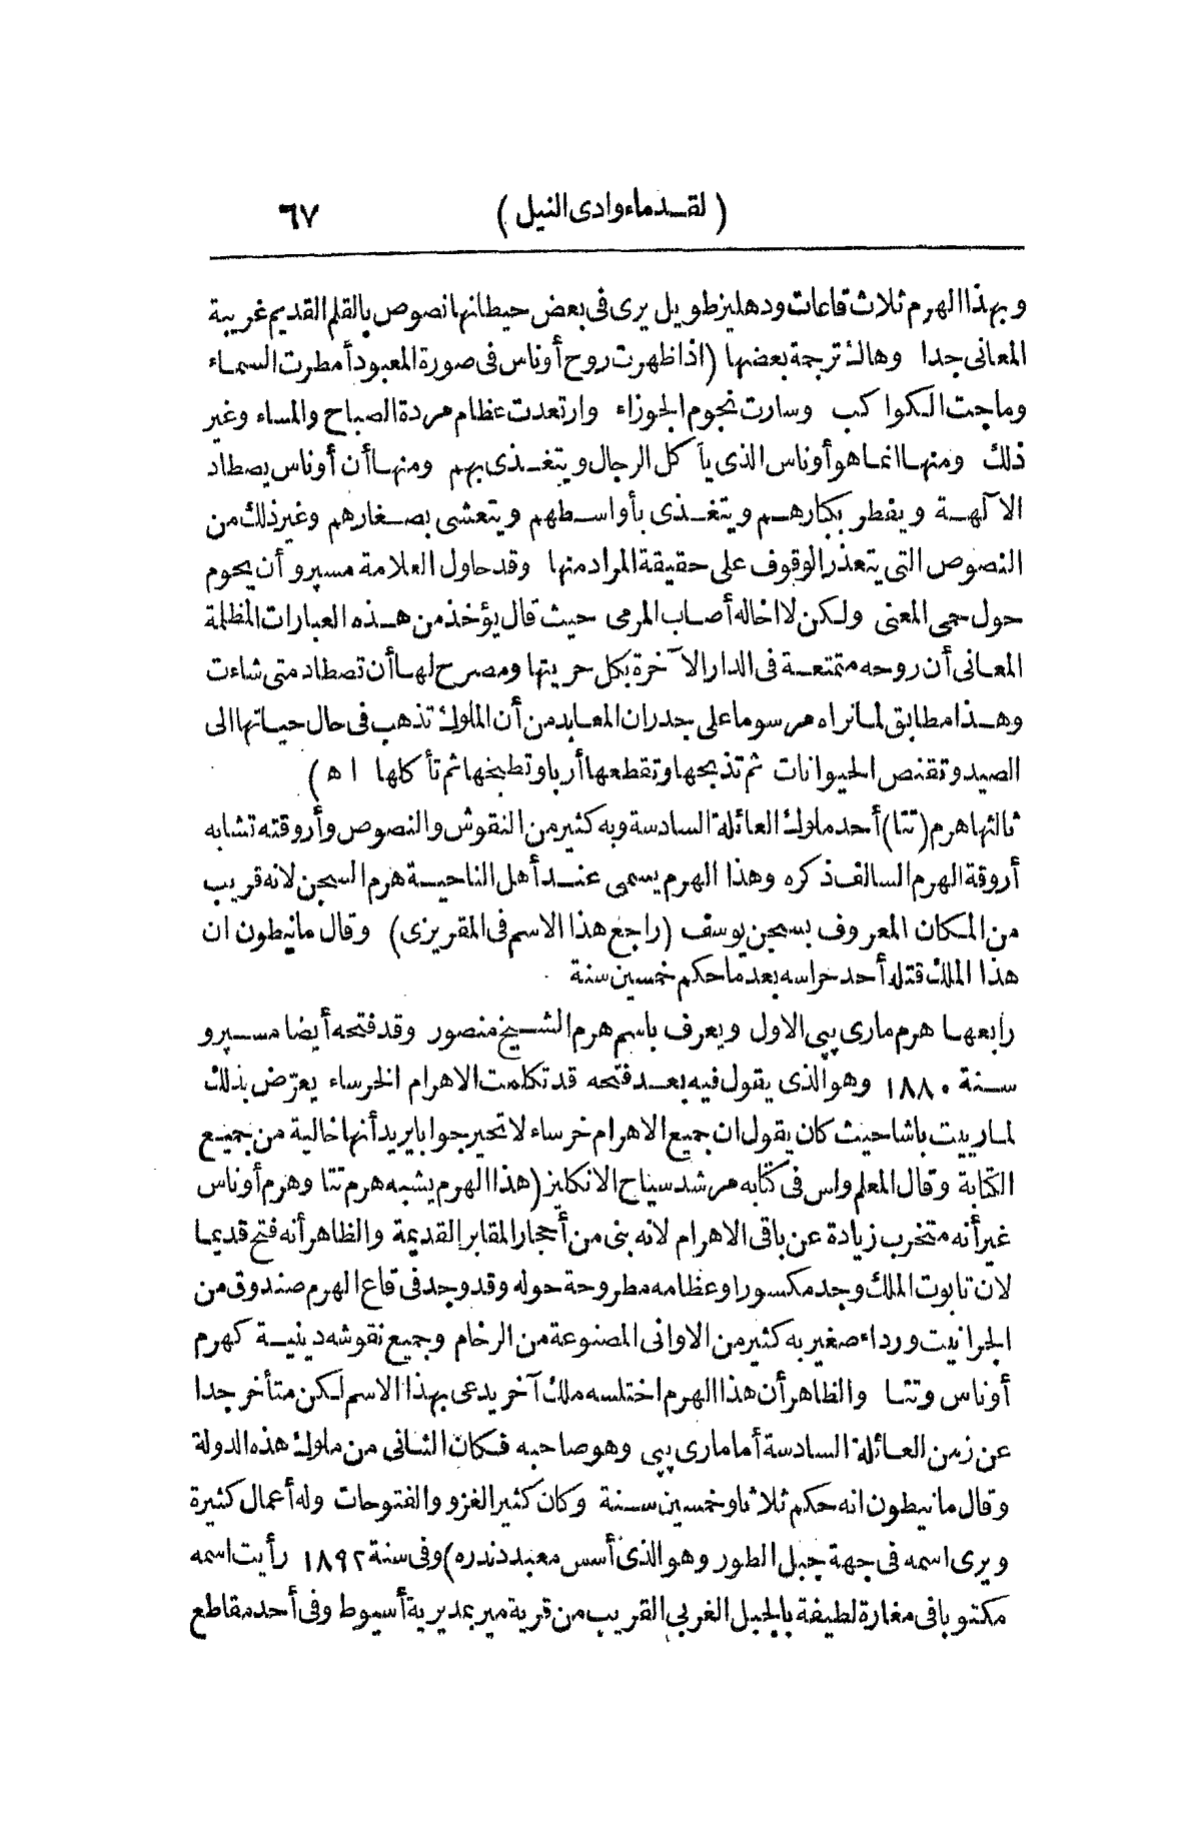 (لقدماء وادى النيل) ٦٧
وبهذا الهرم ثلاث قاعات ودهليز طويل يرى فى بعض حيطانها نصوص بالقلم القديم غريبة
المعانى جدا وهاك ترجمة بعضها (اذا ظهرت روح أوناس فى صورة المعبود أمطرت السماء
وماجت الكواكب وسارت نجوم الجوزاء وارتعدت عظام مردة الصباح والمساء وغير
ذلك ومنها انما هو أوناس الذى يأكل الرجال ويتغذى بهم ومنها أن أوناس يصطاد
الآلهة ويفطر بكبارهم ويتغذى بأواسطهم ويتعشى بصغارهم وغير ذلك من
النصوص التى يتعذر الوقوف على حقيقة المراد منها وقد حاول العلامة مسپرو أن يحوم
حول حمى المعنى ولكن لا اخاله أصاب المرمى حيث قال يؤخذ من هذه العبارات المظلمة
المعانى أن روحه متمتعة فى الدار الآخرة بكل حريتها ومصرح لها أن تصطاد متى شاءت
وهذا مطابق لما نراه مرسوما على جدران المعابد من أن الملوك تذهب فى حال حياتها الى
الصيد وتقنص الحيوانات ثم تذبحها وتقطعها أربا وتطبخها ثم تأكلها اه)
ثالثها هرم (تتا) أحد ملوك العائلة السادسة وبه كثير من النقوش والنصوص وأروقته تشابه
أروقة الهرم السالف ذكره وهذا الهرم يسمى عند أهل الناحية هرم السجن لانه قريب
من المكان المعروف بسجن يوسف (راجع هذا الاسم فى المقريزى) وقال مانيطون ان
هذا الملك قتله أحد حراسه بعد ما حكم خمسين سنة
رابعها هرم مارى پپى الاول ويعرف باسم هرم الشيخ منصور وقد فتحه أيضا مسپرو
سنة ١٨٨٠ وهو الذى يقول فيه بعد فتحه قد تكلمت الاهرام الخرساء يعرّض بذلك
لمارييت باشا حيث كان يقول ان جميع الاهرام خرساء لا تحير جوابا يريد أنها خالية من جميع
الكتابة وقال المعلم واس فى كتابه مرشد سياح الانكليز (هذا الهرم يشبه هرم تتا وهرم أوناس
غير أنه متخرب زيادة عن باقى الاهرام لانه بنى من أحجار المقابر القديمة والظاهر أنه فتح قديما
لان تابوت الملك وجد مكسورا وعظامه مطروحة حوله وقد وجد فى قاع الهرم صندوق من
الجرانيت ورداء صغير به كثير من الاوانى المصنوعة من الرخام وجميع نقوشه دينية كهرم
أوناس وتتا والظاهر أن هذا الهرم اختلسه ملك آخر يدعى بهذا الاسم لكن متأخر جدا
عن زمن العائلة السادسة أما مارى پپى وهو صاحبه فكان الثانى من ملوك هذه الدولة
وقال مانيطون انه حكم ثلاثا وخمسين سنة وكان كثير الغزو والفتوحات وله أعمال كثيرة
ويرى اسمه فى جهة جبل الطور وهو الذى أسس معبد دندره) وفى سنة ١٨٩٢ رأيت اسمه
مكتوبا فى مغارة لطيفة بالجبل الغربى القريب من قرية مير بمديرية أسيوط وفى أحد مقاطع